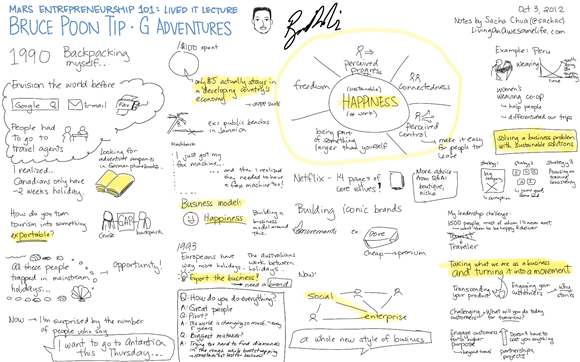 MARS ENTREPRENEURSHIP 101: LIVED IT LECTURE
BRUCE POON TIP · G ADVENTURES
Oct 3, 2012
Notes by Sacha Chua (@sachac)
LivingAnAwesomeLife.com
1990
Backpacking
myself...
Envision the world before
Google
E-mail
Fax
People had
to go to
travel agents
I realized...
Canadians only have
~2 weeks holiday.
Looking for
adventure companies
in German phonebooks
How do you turn
tourism into something
exportable?
Cruise
GAP
backpack
All these people
trapped in mainstream
holidays...
Opportunity!
Now → I'm surprised by the number
of people who say
I want to go to Antarctica
this Thursday...
$100 spent
only $5 actually stays in
a developing country's
economy
ex: public beaches
in Jamaica
I just got my
fax machine...
and then I realized
they needed to have
a fax machine too!
Business model:
Happiness
Building a
business model
around this.
1993
Europeans have
way more holidays
The Australians
work between
holidays...
Export the business!
need a brand
Q: How do you do everything?
A: Great people
Q: Pivot?
A: The world is changing so much... every
5 years
Q: Biggest mistake?
A: Trying too hard to find diamonds
in the rough while bootstrapping
freedom
perceived
progress
connectedness
(sustainable)
HAPPINESS
(at work)
perceived
control
being part
of something
larger than yourself
make it easy
for people to
leave
Netflix - 14 pages of
core values!
More advice
from Q&A:
boutique,
niche
Building iconic brands
movements
ex:
Dove
cheap → premium
Now:
Social
enterprise
a whole new style of business
Example: Peru
weaving
women's
weaving co-op
→ help people
→ differentiated our trips
solving a business problem
with sustainable solutions
strategy 1
strategy 2
strategy 3
→ corruption
My leadership challenge:
1500 people, most of whom I've never met
want them to be happy & deliver
Tourist
Traveller
Taking what we are as a business
and turning it into a movement
Transcending
your product
Engaging your
customers
Why
stories
Challenging: What will you do today
Engage customers
higher
purpose
beyond
Doesn't have to
cost you anything
partnerships
projects